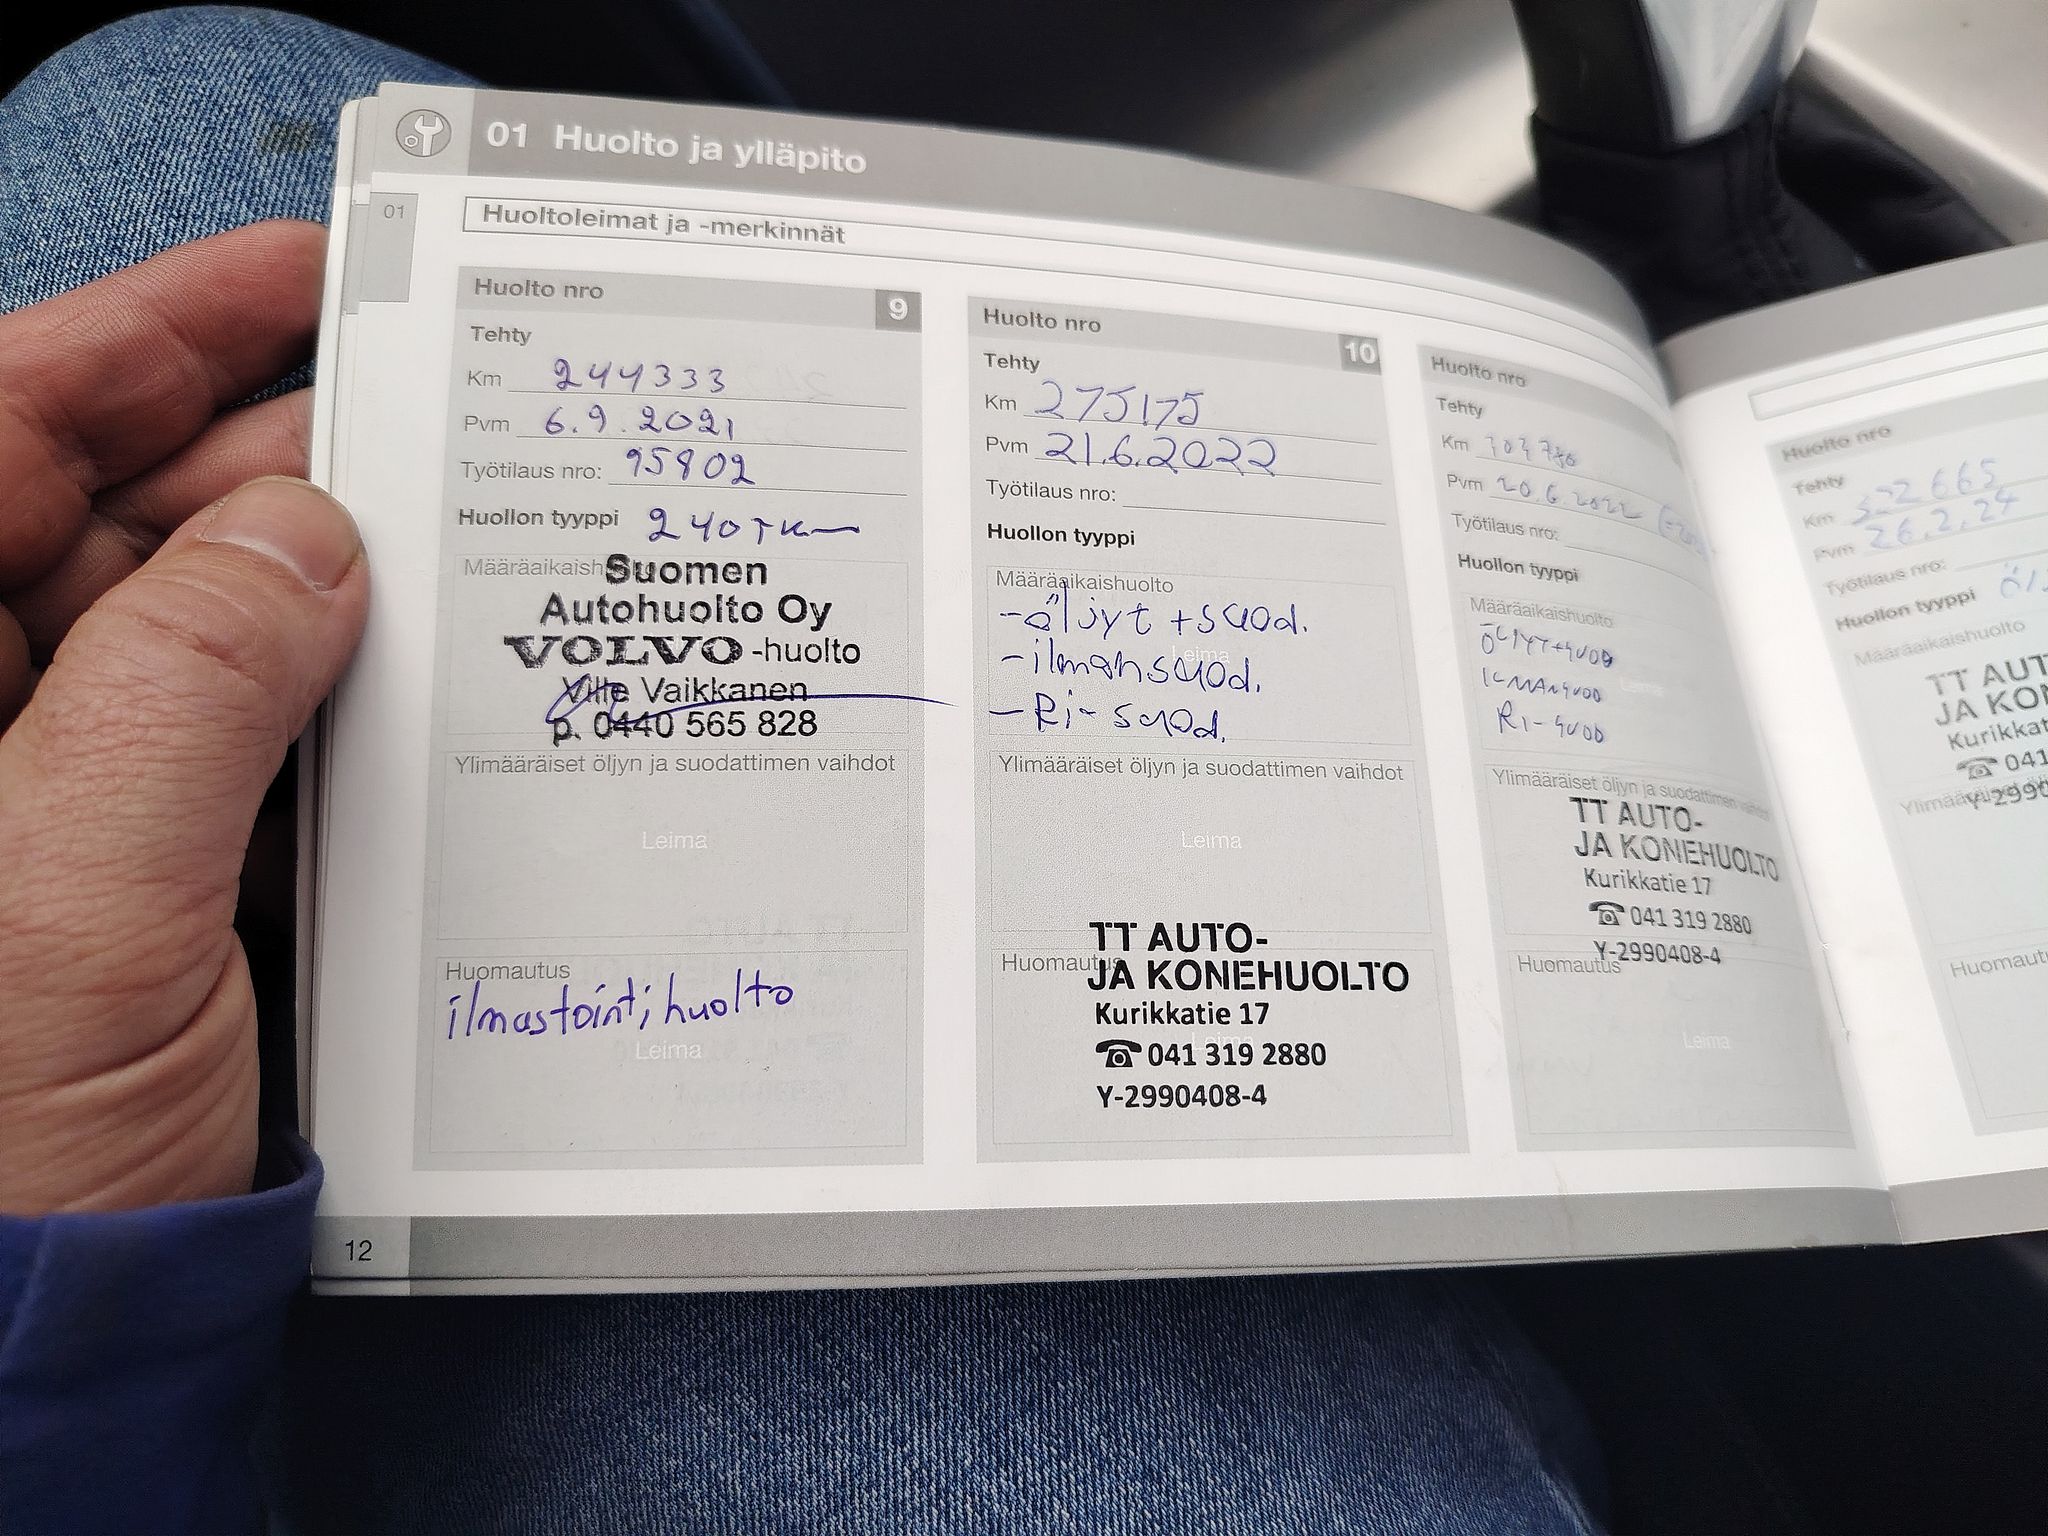 01 Huolto ja ylläpito
01
Huoltoleimat ja -merkinnät
Huolto nro 9
Tehty
Km 244333
Pvm 6.9.2021
Työtilaus nro: 95802
Huollon tyyppi 240TKm
Määräaikaish
Suomen
Autohuolto Oy
VOLVO-huolto
Ville Vaikkanen
p. 0440 565 828
Ylimääräiset öljyn ja suodattimen vaihdot
Leima
Huomautus
ilmastointi,huolto
Leima
Huolto nro 10
Tehty
Km 275175
Pvm 21.6.2022
Työtilaus nro:
Huollon tyyppi
Määräaikaishuolto
-öljyt +suod.
Leima
-ilmansuod.
-Ri-suod.
Ylimääräiset öljyn ja suodattimen vaihdot
Leima
Huomautus
TT AUTO-
JA KONEHUOLTO
Kurikkatie 17
Leima
☎ 041 319 2880
Y-2990408-4
Huolto nro
Tehty
Km
Pvm 20.6.2022
Työtilaus nro:
Huollon tyyppi
Määräaikaishuolto
ÖLJYT+SUOD
ILMANSUOD
Leima
RI-SUOD
Ylimääräiset öljyn ja suodattimen vaihdot
TT AUTO-
JA KONEHUOLTO
Kurikkatie 17
☎ 041 319 2880
Y-2990408-4
Huomautus
Leima
Huolto nro
Tehty
Km 322665
Pvm 26.2.24
Työtilaus nro:
Huollon tyyppi
Määräaikaishuolto
TT AUT
JA KO
Kurikkat
☎ 041
Y-2990
Huomaut
12